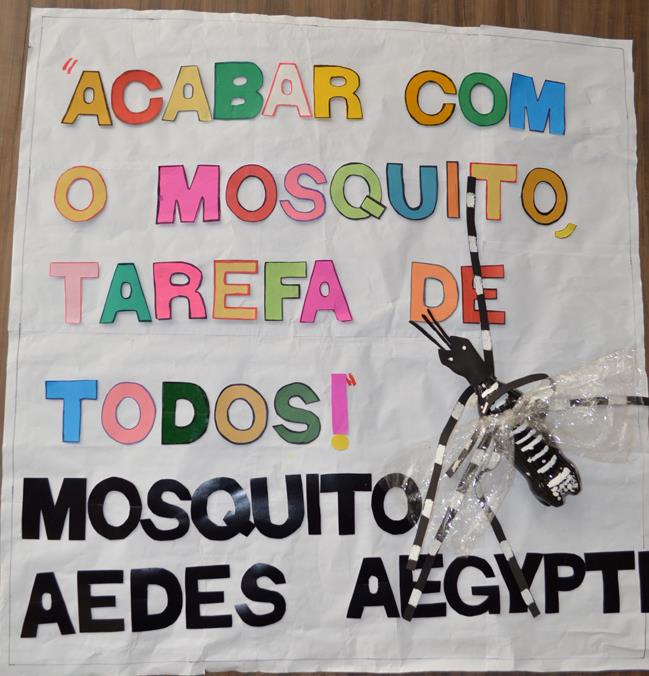 "ACABAR COM
O MOSQUITO,
TAREFA DE
TODOS!"
MOSQUITO
AEDES AEGYPTI